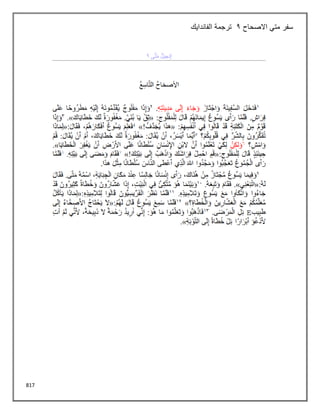 سفر متي الاصحاح ٩ ترجمة الفاندايك
إِنْجِيلُ مَتَّى ٩
الأصحَاحُ التَّاسِعُ
١فَدَخَلَ السَّفِينَةَ وَاجْتَازَ وَجَاءَ إِلَى مَدِينَتِهِ. ٢وَإِذَا مَفْلُوجٌ يُقَدِّمُونَهُ إِلَيْهِ مَطْرُوحًا عَلَى
فِرَاشٍ. فَلَمَّا رَأَى يَسُوعُ إِيمَانَهُمْ قَالَ لِلْمَفْلُوجِ: «ثِقْ يَا بُنَيَّ. مَغْفُورَةٌ لَكَ خَطَايَاكَ». ٣وَإِذَا
قَوْمٌ مِنَ الْكَتَبَةِ قَدْ قَالُوا فِي أَنْفُسِهِمْ: «هذَا يُجَدِّفُ!» ٤فَعَلِمَ يَسُوعُ أَفْكَارَهُمْ، فَقَالَ: «لِمَاذَا
تُفَكِّرُونَ بِالشَّرِّ فِي قُلُوبِكُمْ؟ ٥أَيُّمَا أَيْسَرُ، أَنْ يُقَالَ: مَغْفُورَةٌ لَكَ خَطَايَاكَ، أَمْ أَنْ يُقَالَ: قُمْ
وَامْشِ؟ ٦وَلكِنْ لِكَيْ تَعْلَمُوا أَنَّ لابْنِ الإِنْسَانِ سُلْطَانًا عَلَى الأَرْضِ أَنْ يَغْفِرَ الْخَطَايَا».
حِينَئِذٍ قَالَ لِلْمَفْلُوجِ: «قُمِ احْمِلْ فِرَاشَكَ وَاذْهَبْ إِلَى بَيْتِكَ!» ٧فَقَامَ وَمَضَى إِلَى بَيْتِهِ. ٨فَلَمَّا
رَأَى الْجُمُوعُ تَعَجَّبُوا وَمَجَّدُوا اللهَ الَّذِي أَعْطَى النَّاسَ سُلْطَانًا مِثْلَ هذَا.
٩وَفِيمَا يَسُوعُ مُجْتَازٌ مِنْ هُنَاكَ، رَأَى إِنْسَانًا جَالِسًا عِنْدَ مَكَانِ الْجِبَايَةِ، اسْمُهُ مَتَّى. فَقَالَ
لَهُ: «اتْبَعْنِي». فَقَامَ وَتَبِعَهُ. ١٠وَبَيْنَمَا هُوَ مُتَّكِئٌ فِي الْبَيْتِ، إِذَا عَشَّارُونَ وَخُطَاةٌ كَثِيرُونَ قَدْ
جَاءُوا وَاتَّكَأُوا مَعَ يَسُوعَ وَتَلاَمِيذِهِ. ١١فَلَمَّا نَظَرَ الْفَرِّيسِيُّونَ قَالُوا لِتَلاَمِيذِهِ: «لِمَاذَا يَأْكُلُ
مُعَلِّمُكُمْ مَعَ الْعَشَّارِينَ وَالْخُطَاةِ؟» ١٢فَلَمَّا سَمِعَ يَسُوعُ قَالَ لَهُمْ: «لاَ يَحْتَاجُ الأَصِحَّاءُ إِلَى
طَبِيبٍ بَلِ الْمَرْضَى. ١٣فَاذْهَبُوا وَتَعَلَّمُوا مَا هُوَ: إِنِّي أُرِيدُ رَحْمَةً لاَ ذَبِيحَةً، لأَنِّي لَمْ آتِ
لأَدْعُوَ أَبْرَارًا بَلْ خُطَاةً إِلَى التَّوْبَةِ».
817